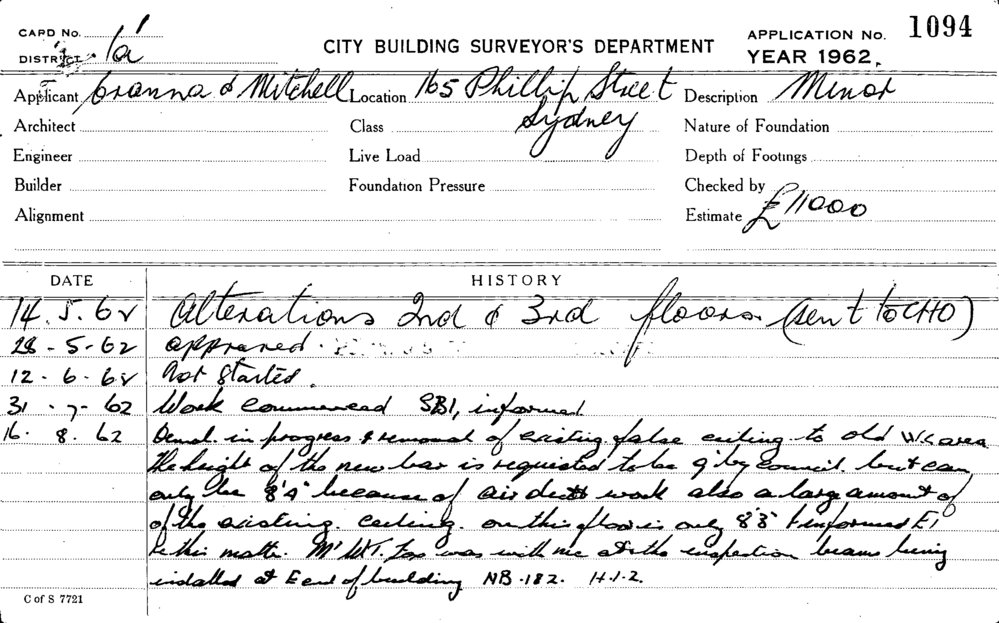 CARD No. 1
DISTRICT 1a
CITY BUILDING SURVEYOR'S DEPARTMENT
APPLICATION No. 1094
YEAR 1962.
Applicant Cranna & Mitchell Location 165 Phillip Street Description Minor
Architect Class Sydney Nature of Foundation
Engineer Live Load Depth of Footings
Builder Foundation Pressure Checked by
Alignment Estimate £11000
DATE HISTORY
14.5.62 Alterations 2nd & 3rd floors (sent to CHO)
28-5-62 approved.
12-6-62 Not Started.
31-7-62 Work commenced SBI, informed
16.8.62 Demol. in progress & removal of existing false ceiling to old W.C area
The height of the new bar is requested to be 9' by council but can
only be 8'4" because of air duct work also a large amount of
of the existing ceiling on this floor is only 8'3" I informed EI
re this matter. Mr W.T. Fox was with me at the inspection beams being
installed at E end of building NB.182. H.I.2.
C of S 7721